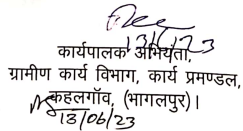 13/6/23
कार्यपालक अभियंता,
ग्रामीण कार्य विभाग, कार्य प्रमण्डल,
कहलगाँव, (भागलपुर)।
13/06/23